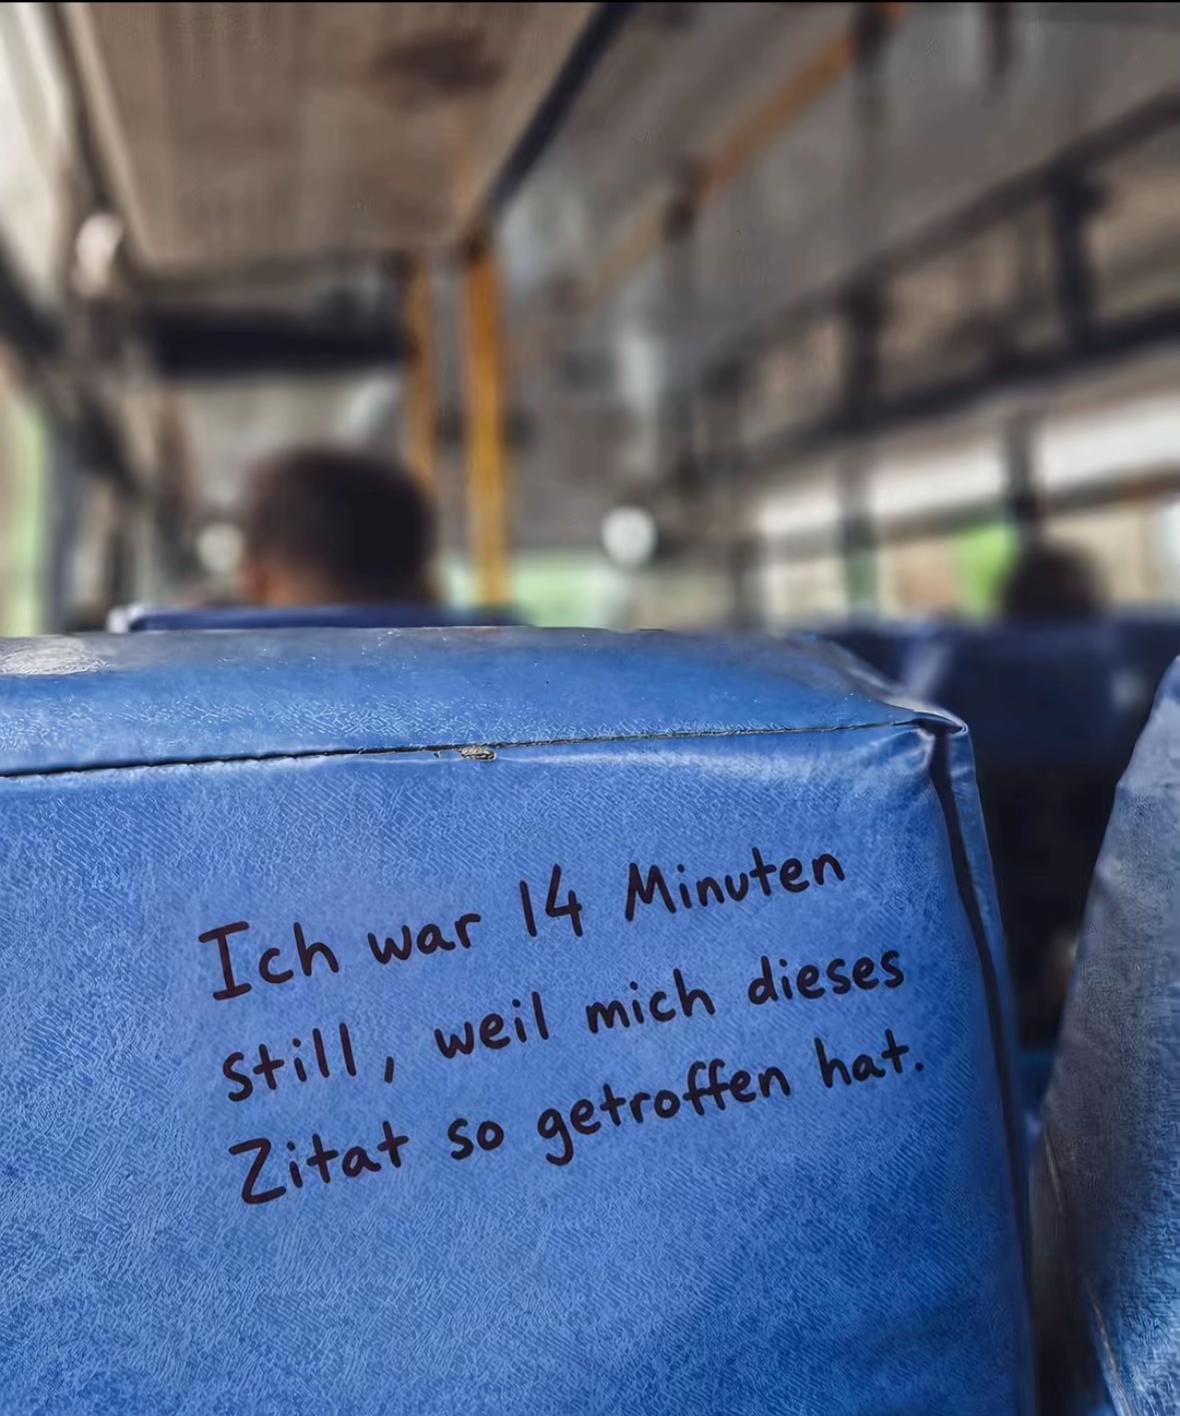 Ich war 14 Minuten
still, weil mich dieses
Zitat so getroffen hat.